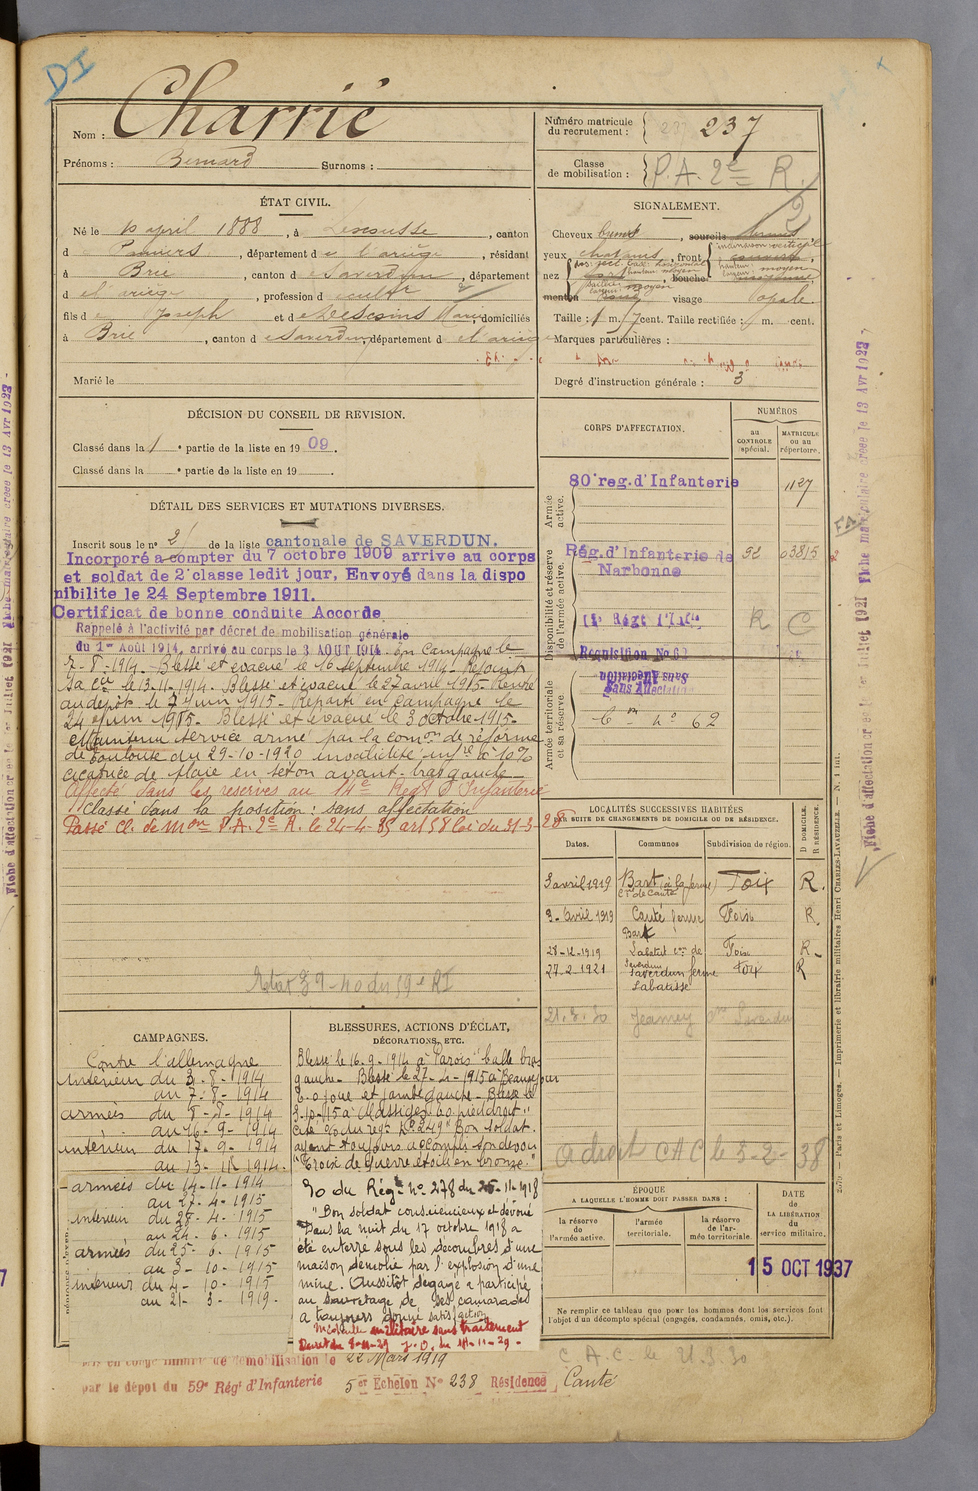 DI
Nom : Charrié
Prénoms : Bernard Surnoms :
Numéro matricule du recrutement : 237
Classe de mobilisation : P. A. 2e R.
ÉTAT CIVIL.
Né le 10 april 1888, à Lescousse, canton
d Pamiers, département de l'ariège, résidant
à Brie, canton de Saverdun, département
d el ariège, profession de cult
fils de Joseph et de Descoins, domiciliés
à Brie, canton de Saverdun, département d el ariège
Marié le
SIGNALEMENT.
Cheveux bruns, sourcils
yeux chatains, front
inclinaison verticale
nez, bouche
menton visage ovale
Taille : 1 m. cent. Taille rectifiée : m. cent.
Marques particulières :
Degré d'instruction générale : 3
DÉCISION DU CONSEIL DE REVISION.
Classé dans la 1e partie de la liste en 1909.
Classé dans la e partie de la liste en 19
DÉTAIL DES SERVICES ET MUTATIONS DIVERSES.
Inscrit sous le no 2 de la liste cantonale de SAVERDUN.
Incorporé a compter du 7 octobre 1909 arrive au corps
et soldat de 2e classe ledit jour, Envoyé dans la dispo
nibilite le 24 Septembre 1911.
Certificat de bonne conduite Accorde
Rappelé à l'activité par décret de mobilisation générale
du 1er Août 1914, arrivé au corps le 3 AOUT 1914. En Campagne le
7-8-1914. Blessé et évacué le 16 septembre 1914. Rejoint
sa Cie le 13.11-1914. Blessé et évacué le 27 avril 1915. Rentré
au dépôt le 7 juin 1915. Reparti en campagne le
24 juin 1915. Blessé et évacué le 3 octobre 1915.
Maintenu service armé par la comon de réforme
de Toulouse du 29-10-1920 invalidité infre à 10%
cicatrice de plaie en séton avant-bras gauche
Affecté dans les réserves au 14e Régt d'Infanterie
Classé dans la position : sans affectation
Passé Cl. de Mon P.A. 2e R. le 24-4-35 art 58 loi du 31-3-28
CORPS D'AFFECTATION.
NUMÉROS
au CONTROLE spécial.
MATRICULE ou au répertoire.
Armée active.
80e reg. d'Infanterie 1127
Disponibilité et réserve de l'armée active.
Rég. d'Infanterie de Narbonne 52 03815
Régt d'Infie R C
Requisition No 62
Armée territoriale et sa réserve.
Sans Affectation
Sans Affectation
No 62
LOCALITÉS SUCCESSIVES HABITÉES
PAR SUITE DE CHANGEMENTS DE DOMICILE OU DE RÉSIDENCE.
Dates. Communes Subdivision de région. D DOMICILE. R RÉSIDENCE.
3 avril 1919 Bart (à la ferme) Cne de Canté Foix R.
3 - Avril 1919 Canté ferme Bart Foix R.
28-12-1919 Labatut cne de Saverdun Foix R.
27-2-1921 Saverdun ferme Labatisse Foix R
21.3.30 Jeanrey Saverdun
CAMPAGNES.
Contre l'allemagne
intérieur du 3-8-1914
au 7-8-1914
armées du 8-8-1914
au 16-9-1914
intérieur du 17-9-1914
au 13-11-1914.
armées du 14-11-1914
au 27-4-1915
intérieur du 28-4-1915
au 24-6-1915
armées du 25-6-1915
au 3-10-1915
intérieur du 4-10-1915
au 21-3-1919.
BLESSURES, ACTIONS D'ÉCLAT, DÉCORATIONS, ETC.
Blessé le 16-9-1914 à Parois balle bras
gauche - Blessé le 27-4-1915 à Beauséjour
E.O joue et jambe gauche - Blessé le
3-10-15 à Massiges E.O pied droit.
Cité O du régt No 249 "Bon soldat
ayant toujours accompli son devoir"
"Croix de guerre étoile en bronze."
O du Régt no 278 du 25-11-1918
"Bon soldat consciencieux et dévoué
Dans la nuit du 17 octobre 1918 a
été enterré sous les décombres d'une
maison démolie par l'explosion d'une
mine. Aussitôt dégagé a participé
au sauvetage de ses camarades
a toujours donné satisfaction
Médaille militaire sans traitement
J.O. du 11-29
ÉPOQUE
A LAQUELLE L'HOMME DOIT PASSER DANS :
la réserve de l'armée active.
l'armée territoriale.
la réserve de l'armée territoriale.
DATE DE LA LIBÉRATION du service militaire.
15 OCT 1937
Ne remplir ce tableau que pour les hommes dont les services font
l'objet d'un décompte spécial (engagés, condamnés, omis, etc.).
a droit CAC le 5-2-38
C.A.C. le 21.3.30
mis en congé illimité de démobilisation le 22 Mars 1919
par le dépot du 59e Régt d'Infanterie 5er Echelon No 238 Résidence Canté
Paris et Limoges. — Imprimerie et librairie militaires Henri CHARLES-LAVAUZELLE.
Fiche d'affectation créée le 1er Juillet 1921 Fiche matriculaire créée le 13 Avr 1923